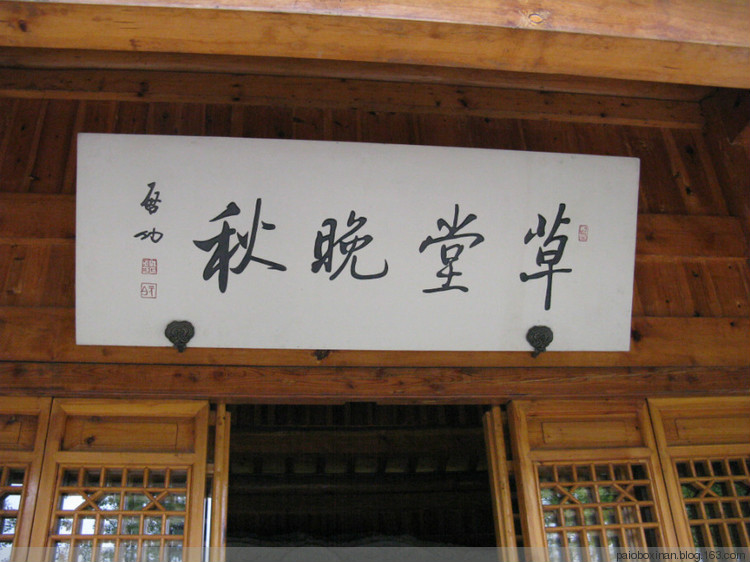 草堂晚秋
启功
paioboxinan.blog.163.com